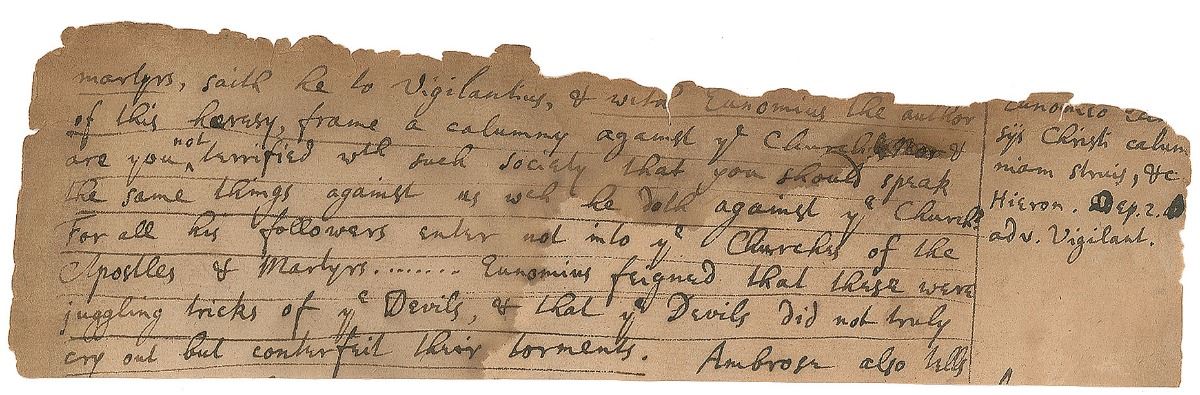 martyrs, saith he to Vigilantius, & with Eunomius the author
of this heresy, frame a calumny against yͤ Church &
are you not terrified wth such society that you should speak
the same things against us wch he doth against yͤ Church.
For all his followers enter not into yͤ Churches of the
Apostles & Martyrs........ Eunomius feigned that these were
juggling tricks of yͤ Devils, & that yͤ Devils did not truly
cry out but conterfeit their torments. Ambrose also tells
eunomeo
sijs Christi calum
niam struis, &c
Hieron. Ep. 2.
adv. Vigilant.